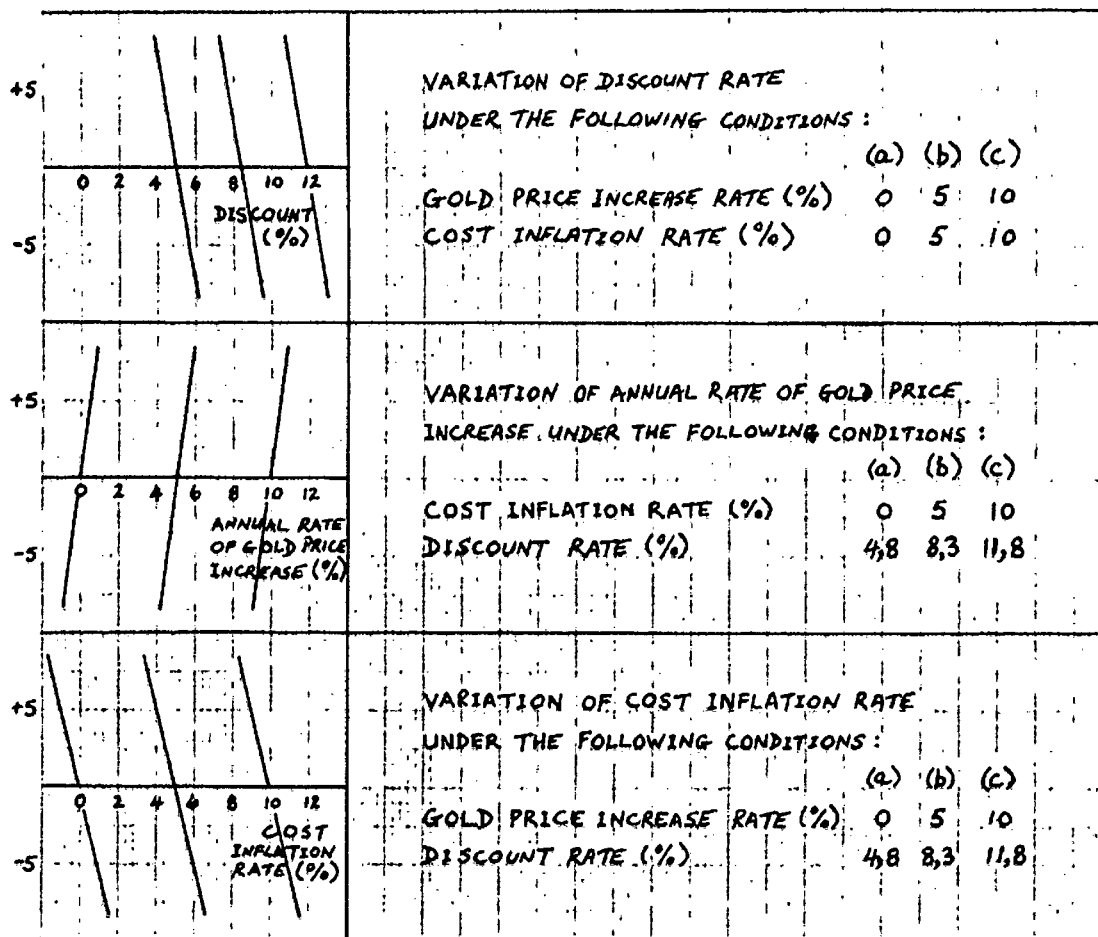 +5
0 2 4 6 8 10 12
DISCOUNT
(%)
-5
VARIATION OF DISCOUNT RATE
UNDER THE FOLLOWING CONDITIONS :
(a) (b) (c)
GOLD PRICE INCREASE RATE (%) 0 5 10
COST INFLATION RATE (%) 0 5 10
+5
0 2 4 6 8 10 12
ANNUAL RATE
OF GOLD PRICE
INCREASE (%)
-5
VARIATION OF ANNUAL RATE OF GOLD PRICE
INCREASE UNDER THE FOLLOWING CONDITIONS :
(a) (b) (c)
COST INFLATION RATE (%) 0 5 10
DISCOUNT RATE (%) 4,8 8,3 11,8
+5
0 2 4 6 8 10 12
COST
INFLATION
RATE (%)
-5
VARIATION OF COST INFLATION RATE
UNDER THE FOLLOWING CONDITIONS :
(a) (b) (c)
GOLD PRICE INCREASE RATE (%) 0 5 10
DISCOUNT RATE (%) 4,8 8,3 11,8